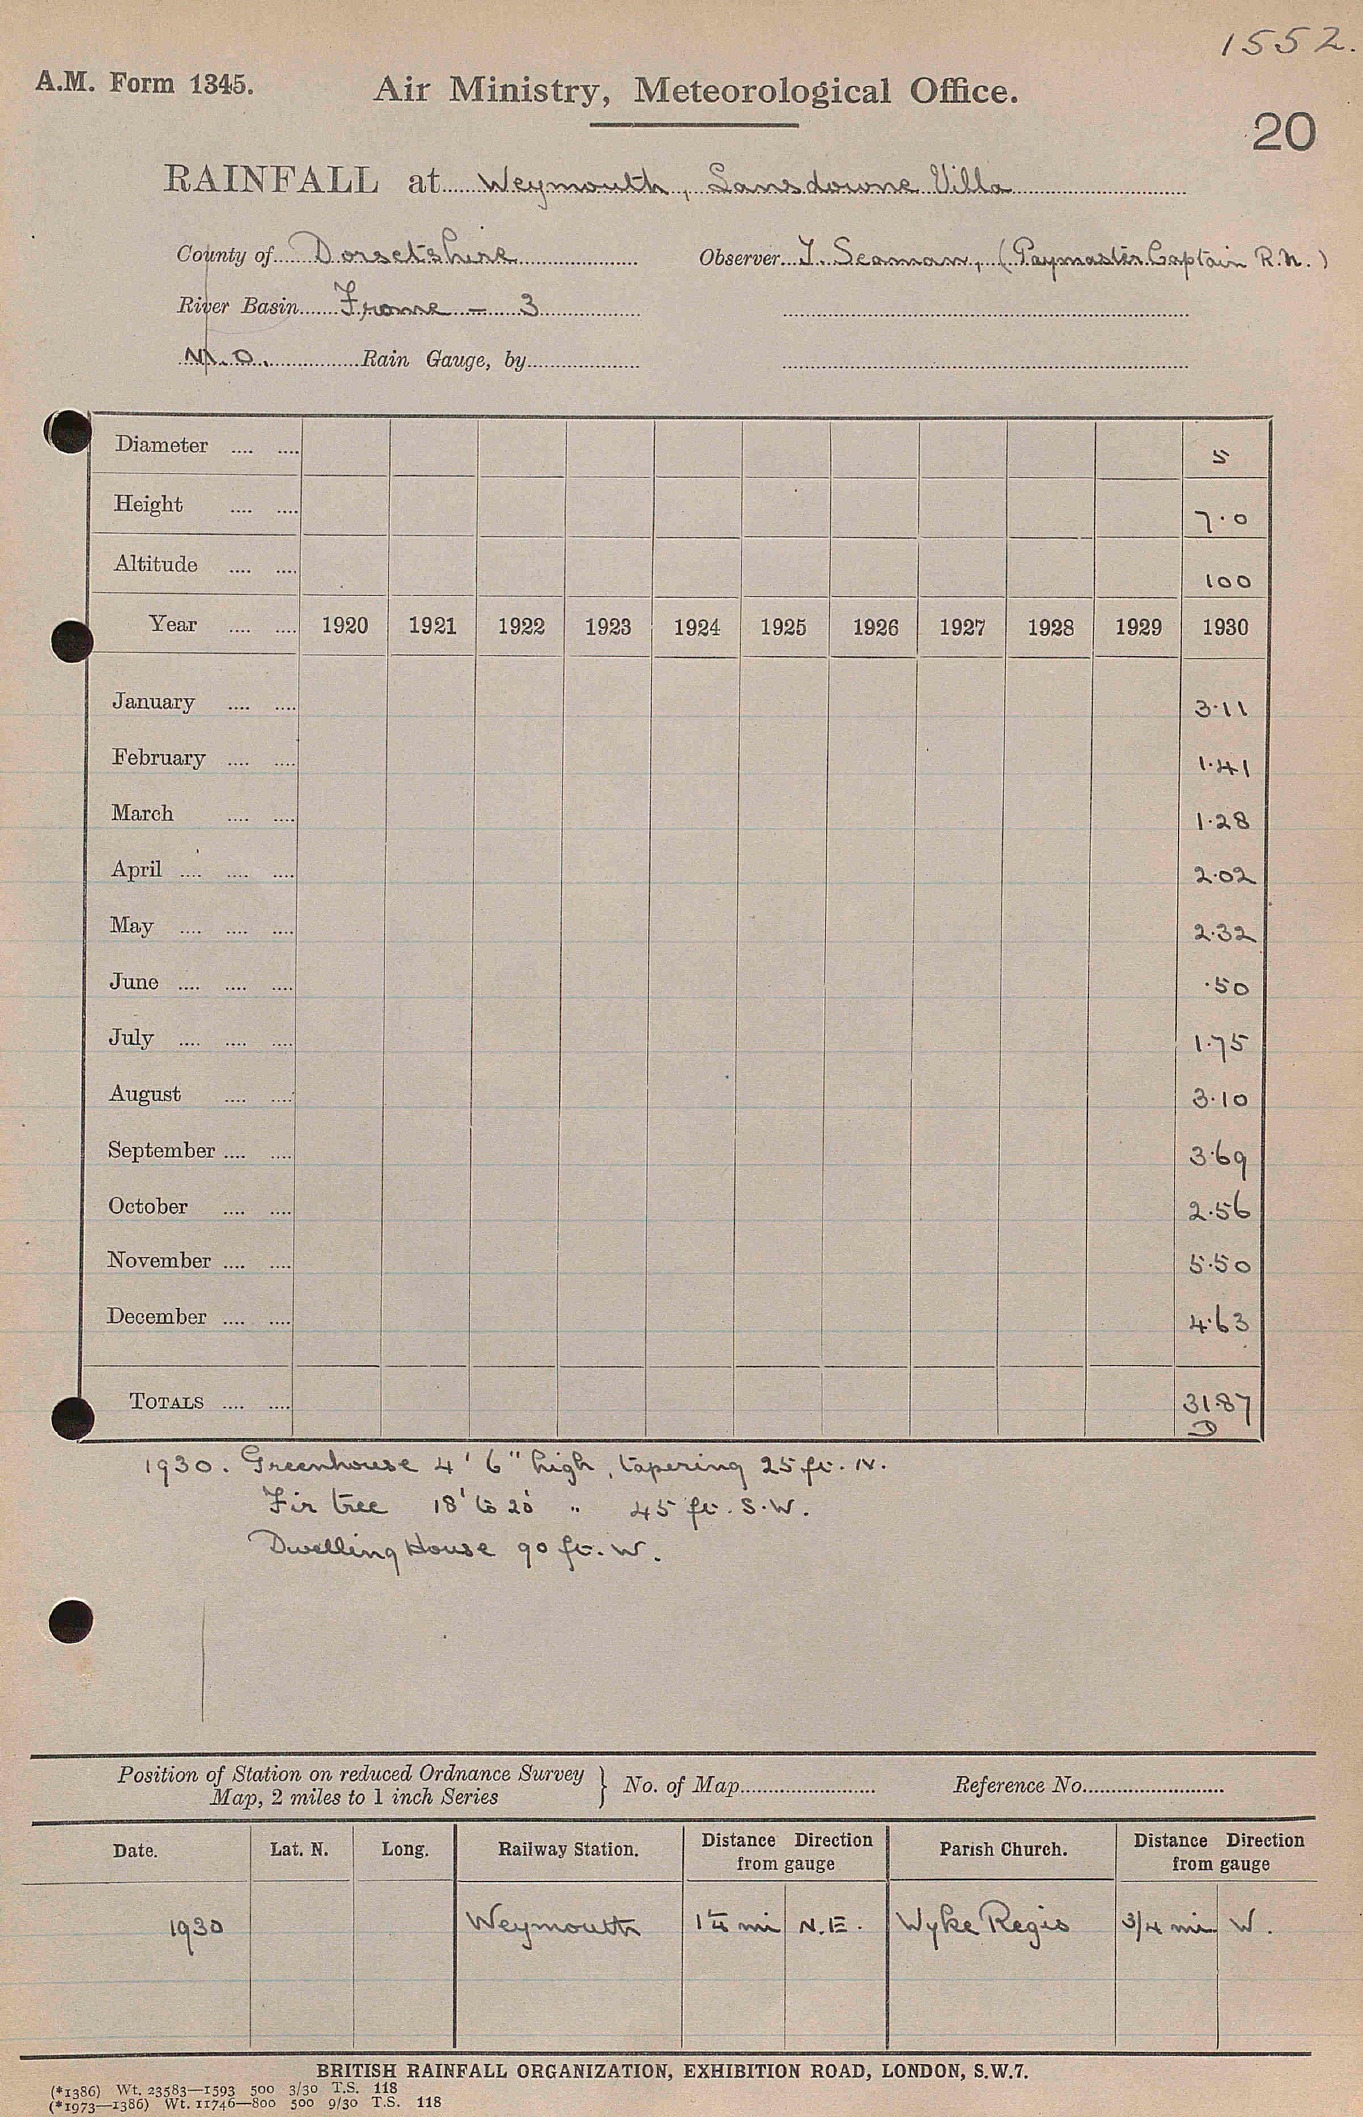 1552.
A.M. Form 1345. Air Ministry, Meteorological Office.
20
RAINFALL at Weymouth, Lansdowne Villa
County of Dorsetshire Observer J. Seaman, (Paymaster Captain R.N.)
River Basin Frome - 3
M.O. Rain Gauge, by
Diameter 5
Height 7.0
Altitude 100
Year 1920 1921 1922 1923 1924 1925 1926 1927 1928 1929 1930
January 3.11
February 1.41
March 1.28
April 2.02
May 2.32
June .50
July 1.75
August 3.10
September 3.69
October 2.56
November 5.50
December 4.63
TOTALS 31.87
D
1930. Greenhouse 4' 6" high, tapering 25 ft. N.
Fir tree 18' to 20' " 45 ft. S.W.
Dwelling House 90 ft. W.
Position of Station on reduced Ordnance Survey
Map, 2 miles to 1 inch Series } No. of Map Reference No.
Date. Lat. N. Long. Railway Station. Distance Direction from gauge Parish Church. Distance Direction from gauge
1930 Weymouth 1¼ mi N.E. Wyke Regis 3/4 mi W.
BRITISH RAINFALL ORGANIZATION, EXHIBITION ROAD, LONDON, S.W.7.
(*1386) Wt. 23583—1593 500 3/30 T.S. 118
(*1973—1386) Wt. 11746—800 500 9/30 T.S. 118